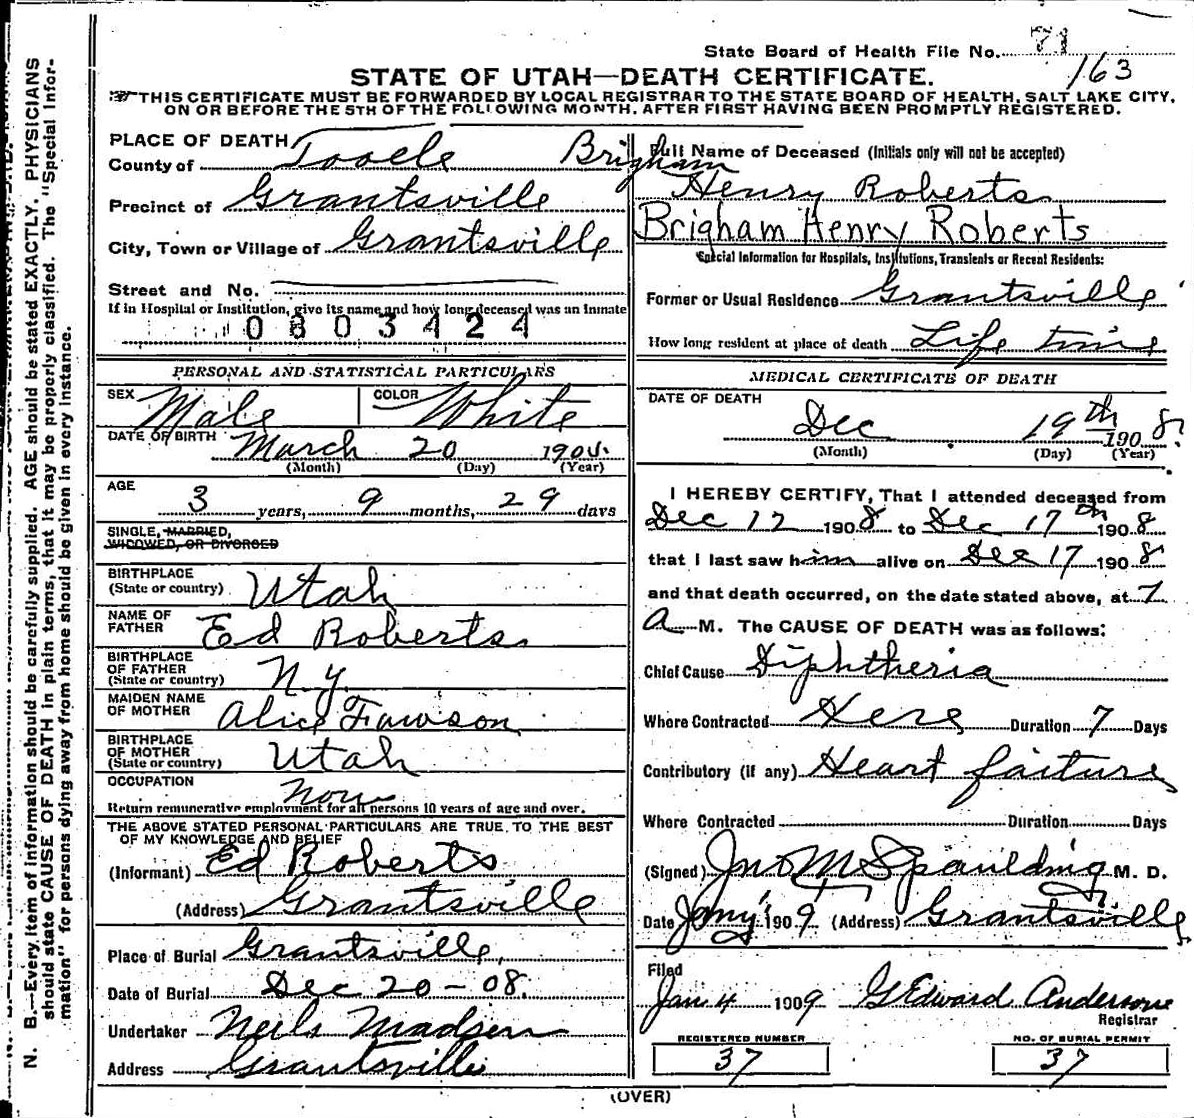 State Board of Health File No. 71
163
STATE OF UTAH—DEATH CERTIFICATE.
THIS CERTIFICATE MUST BE FORWARDED BY LOCAL REGISTRAR TO THE STATE BOARD OF HEALTH, SALT LAKE CITY,
ON OR BEFORE THE 5TH OF THE FOLLOWING MONTH, AFTER FIRST HAVING BEEN PROMPTLY REGISTERED.
PLACE OF DEATH
County of Tooele
Precinct of Grantsville
City, Town or Village of Grantsville
Street and No.
If in Hospital or Institution, give its name and how long deceased was an inmate
0803424
PERSONAL AND STATISTICAL PARTICULARS
SEX Male COLOR White
DATE OF BIRTH March 20 1904.
(Month) (Day) (Year)
AGE
3 years, 9 months, 29 days
SINGLE, MARRIED,
WIDOWED, OR DIVORCED
BIRTHPLACE
(State or country) Utah
NAME OF
FATHER Ed Roberts
BIRTHPLACE
OF FATHER
(State or country) N.Y.
MAIDEN NAME
OF MOTHER Alice Fawson
BIRTHPLACE
OF MOTHER
(State or country) Utah
OCCUPATION
Return remunerative employment for all persons 10 years of age and over.
THE ABOVE STATED PERSONAL PARTICULARS ARE TRUE TO THE BEST
OF MY KNOWLEDGE AND BELIEF
(Informant) Ed Roberts
(Address) Grantsville
Place of Burial Grantsville,
Date of Burial Dec 20-08.
Undertaker Neils Madsen
Address Grantsville
Full Name of Deceased (Initials only will not be accepted)
Brigham
Henry Roberts
Brigham Henry Roberts
Special Information for Hospitals, Institutions, Transients or Recent Residents:
Former or Usual Residence Grantsville
How long resident at place of death Life time
MEDICAL CERTIFICATE OF DEATH
DATE OF DEATH
Dec 19th 1908
(Month) (Day) (Year)
I HEREBY CERTIFY, That I attended deceased from
Dec 12 1908 to Dec 17th 1908
that I last saw him alive on Dec 17 1908
and that death occurred, on the date stated above, at 7
A M. The CAUSE OF DEATH was as follows:
Chief Cause Diphtheria
Where Contracted Here Duration 7 Days
Contributory (if any) Heart failure
Where Contracted Duration Days
(Signed) Jno M Spaulding M. D.
Date 1909 (Address) Grantsville
Filed
Jan 4 1909 G Edward Anderson
Registrar
REGISTERED NUMBER
37
NO. OF BURIAL PERMIT
37
(OVER)
N. B.—Every item of information should be carefully supplied. AGE should be stated EXACTLY. PHYSICIANS
should state CAUSE OF DEATH in plain terms, that it may be properly classified. The "Special Infor-
mation" for persons dying away from home should be given in every instance.